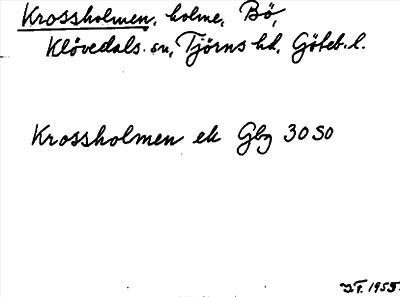 Krossholmen, holme, Bö,
Klövedals sn, Tjörns hd, Göteb. l.
Krossholmen ek Gbg 30 SO
I.F. 1955.